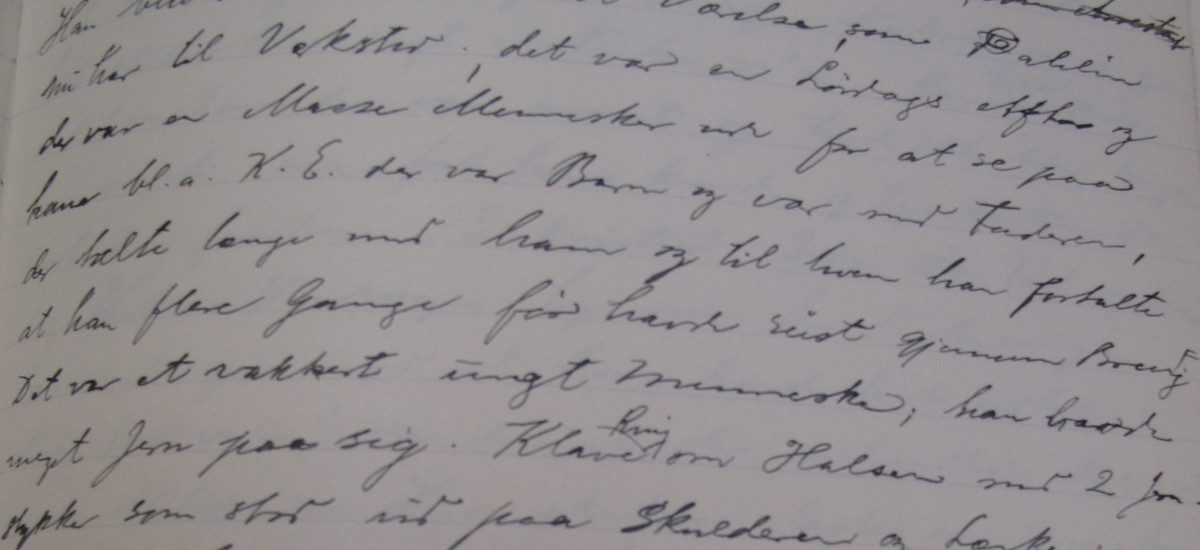 Han Værelse, som Dahlin
nu har til Værksted; det var en Lördags Efter og
der var en Masse Mennesker ude for at se paa
ham bl. a. K. E. der var Barn og var med Faderen,
der talte længe med ham og til hvem han fortalte
at han flere Gange för havde reist gjennem Brevig
Det var et vakkert ungt Menneske; han havde
meget Jern paa sig. Klave Ring om Halsen med 2 Jern-
stykker som stod ud paa Skulderen og